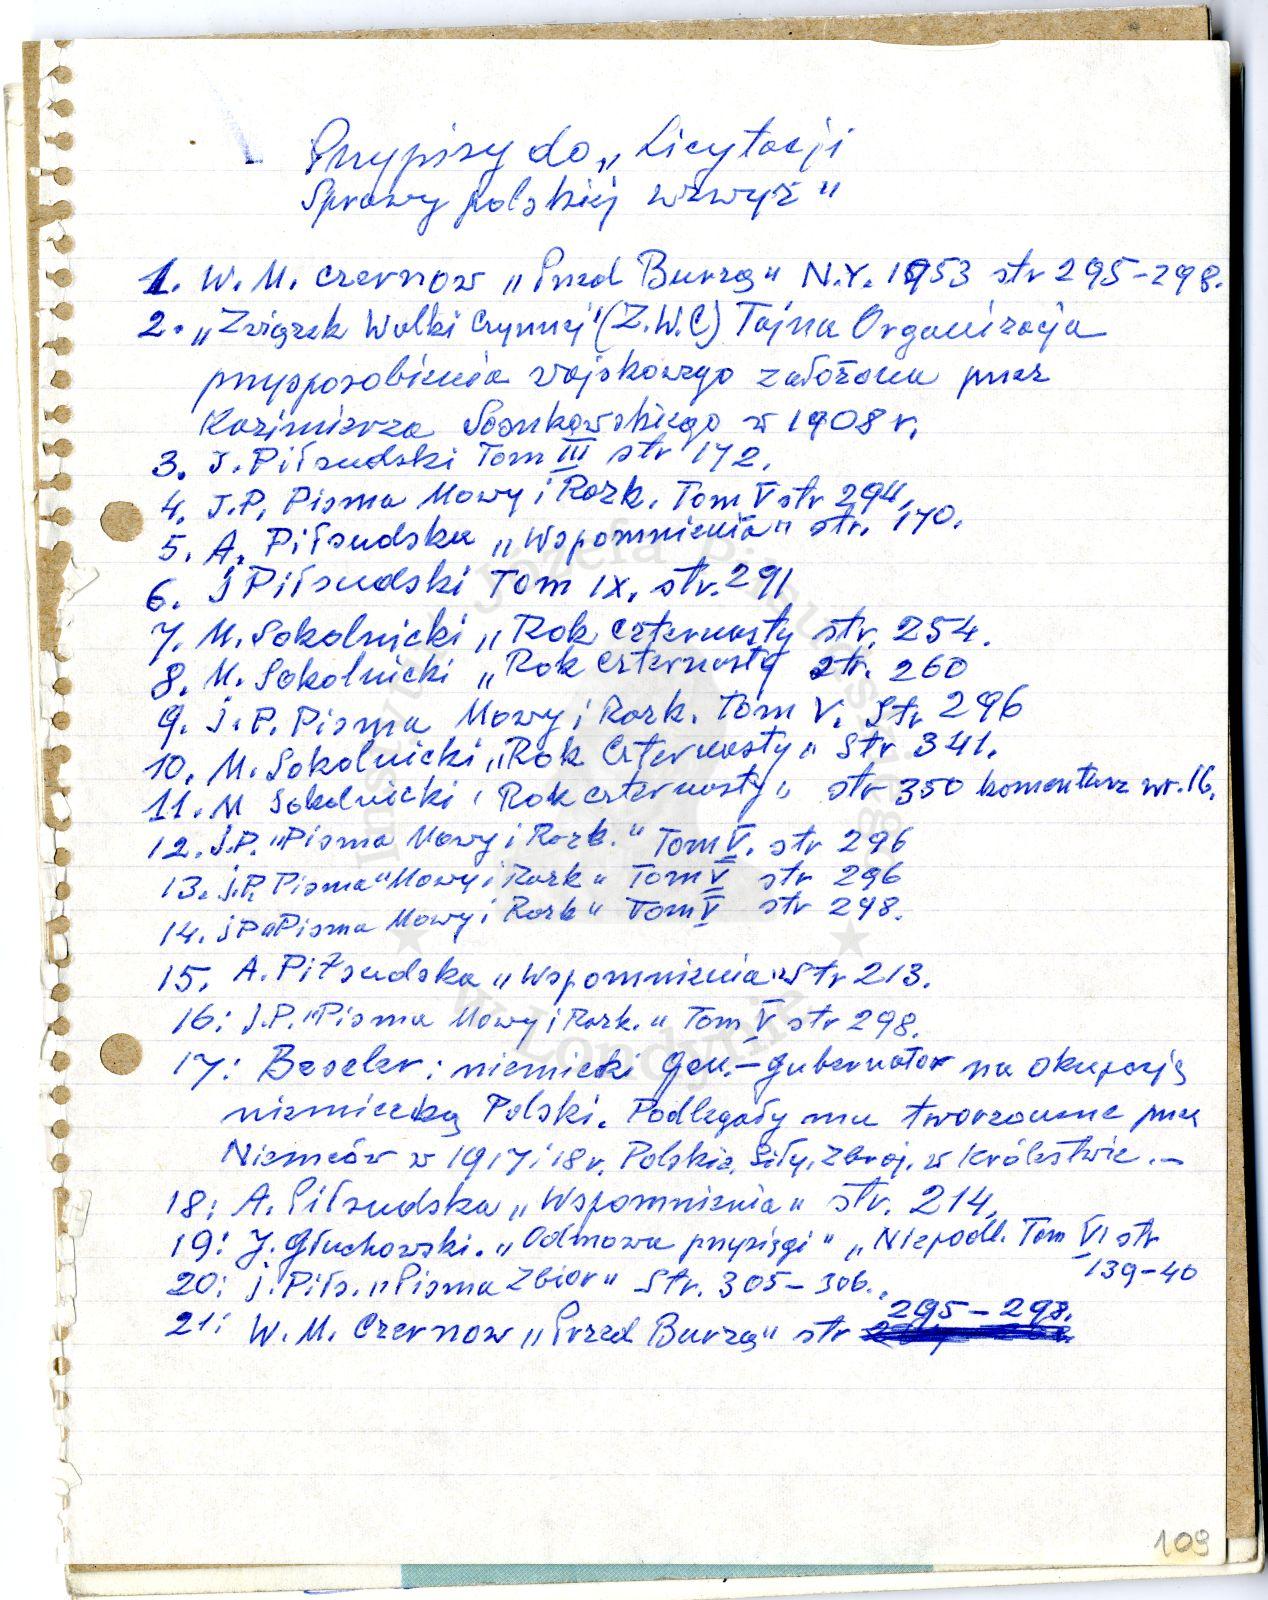 Przypisy do „Licytacji
Sprawy polskiej wzwyż"
1. W. M. Czernow „Przed Burzą" N.Y. 1953 str 295-298.
2. „Związek Walki Czynnej" (Z.W.C) Tajna Organizacja
przysposobienia wojskowego założona przez
Kazimierza Sosnkowskiego w 1908 r.
3. J. Piłsudski Tom III str 172.
4. J.P. Pisma Mowy i Rozk. Tom V str 294,
5. A. Piłsudska „Wspomnienia" str. 170.
6. J Piłsudski Tom IX. str. 291
7. M. Sokolnicki „Rok czternasty str. 254.
8. M. Sokolnicki „Rok czternasty str. 260
9. J.P. Pisma Mowy i Rozk. Tom V. Str 296
10. M. Sokolnicki „Rok Czternasty" Str 341.
11. M Sokolnicki „Rok czternasty" str 350 komentarz nr. 16.
12. J.P. "Pisma Mowy i Rozk." Tom V. str 296
13. J.P. Pisma "Mowy i Rozk" Tom V str 296
14. JP „Pisma Mowy i Rozk" Tom V str 298.
15. A. Piłsudska „Wspomnienia" Str 213.
16: J.P. "Pisma Mowy i Rozk." Tom V str 298.
17: Beseler: niemiecki Gen.-gubernator na okupację
niemiecką Polski. Podlegały mu tworzone przez
Niemców w 1917 i 18 r. Polskie. Siły. Zbroj. w Królestwie.-
18: A. Piłsudska „Wspomnienia" str. 214,
19: J. Głuchowski. „Odmowa przysięgi" „Niepodl. Tom VI str
139-40
20: J. Piłs. „Pisma Zbior" Str. 305-306.
295-298.
21: W. M. Czernow „Przed Burzą" str
Instytut Józefa Piłsudskiego
w Londynie
109